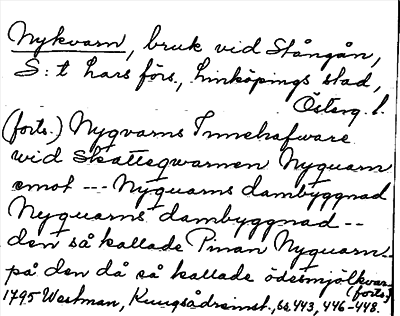 Nykvarn, bruk vid Stångån,
S:t Lars förs., Linköpings stad,
Österg. l.
(forts.) Nyqvarns Innehafware
vid Skatteqwarnen Nyquarn
emot --- Nyquarns dambyggnad
Nyquarns dambyggnad --
den så kallade Pinan Nyquarn -
på den då så kallade ödesmjölkvar-
(forts.)
1795 Westman, Kungsådreinst., ss 443, 446-448.